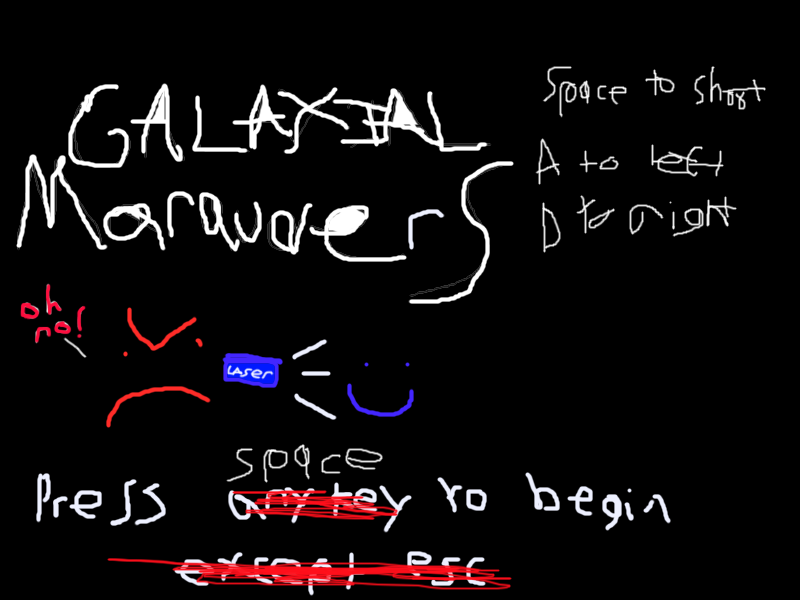 GALAXIAL
MarauderS
Space to shoot
A to left
D to right
oh
no!
LASER
space
Press any key to begin
except esc